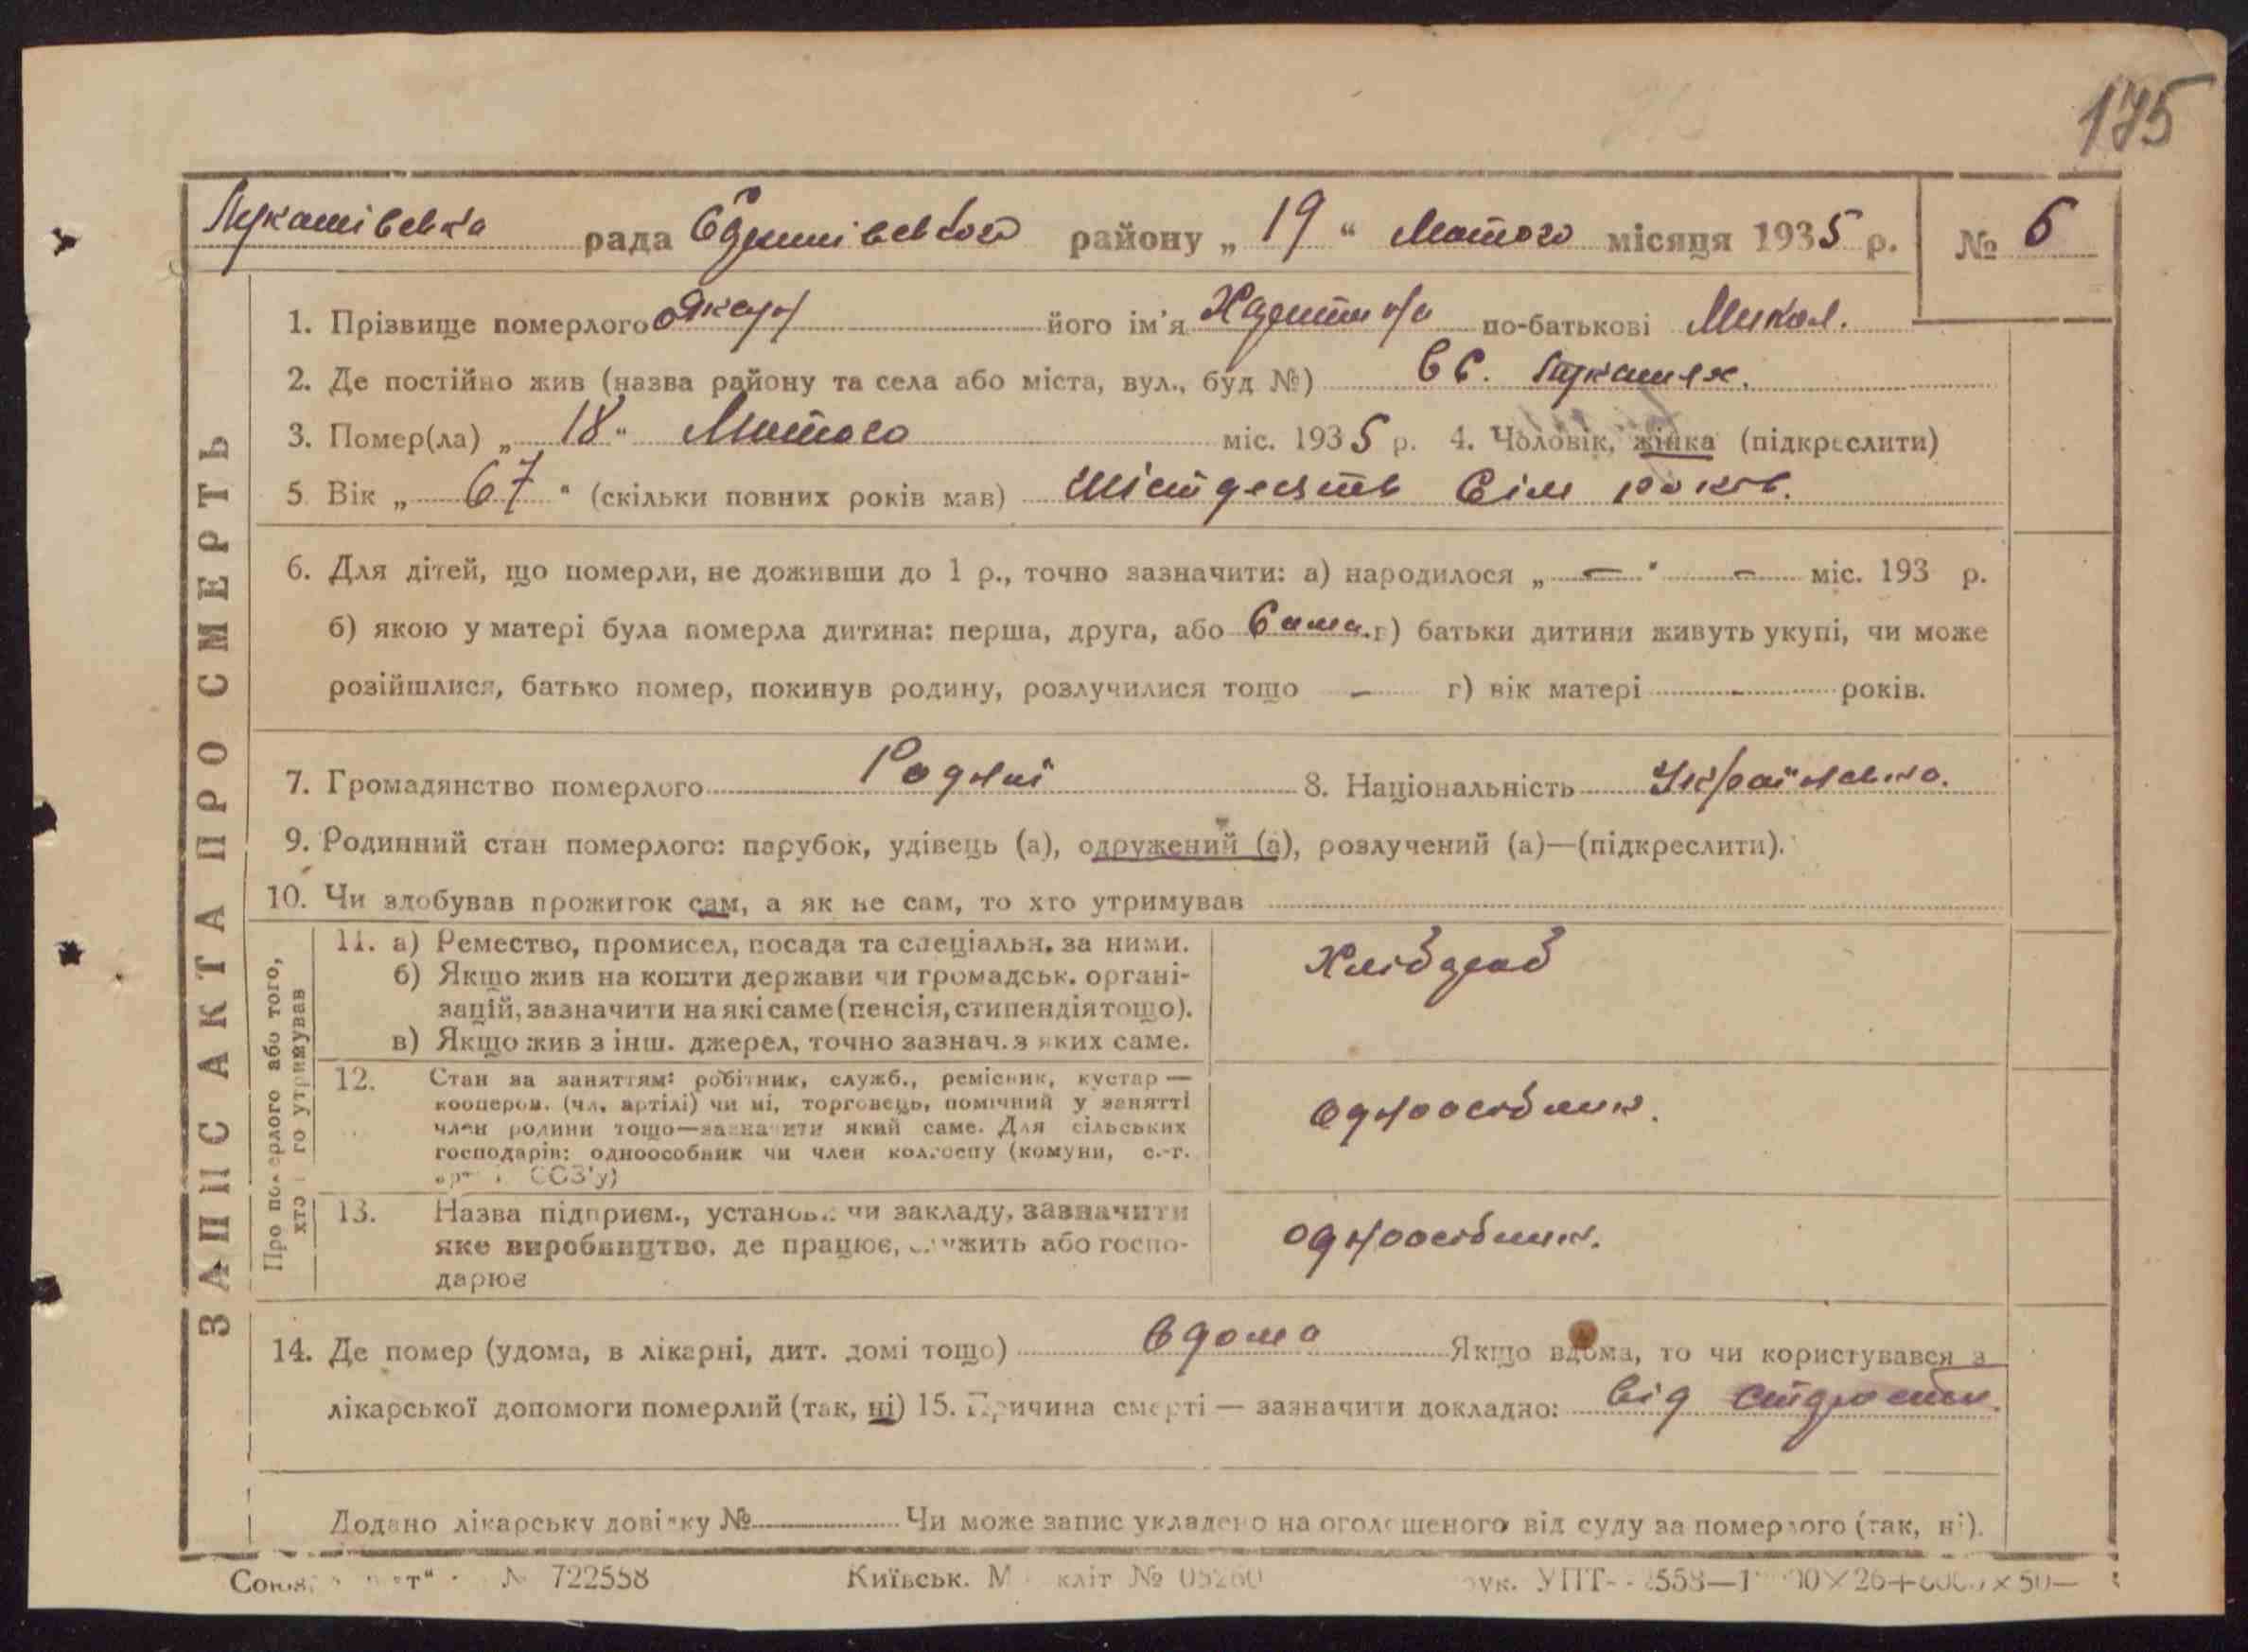 175
Лукашівська рада району „ 19 “ Лютого місяця 1935 р. № 6
ЗАПИС АКТА ПРО СМЕРТЬ
1. Прізвище померлого його ім’я по-батькові Микол.
2. Де постійно жив (назва району та села або міста, вул., буд №) в с. Лукашах.
3. Помер(ла) „ 18 “ Лютого міс. 1935 р. 4. Чоловік, жінка (підкреслити)
5 Вік „ 67 “ (скільки повних років мав) шістдесять сім років.
6. Для дітей, що померли, не доживши до 1 р., точно зазначити: а) народилося „ — “ — міс. 193 р.
б) якою у матері була померла дитина: перша, друга, або г) батьки дитини живуть укупі, чи може
розійшлися, батько помер, покинув родину, розлучилися тощо — г) вік матері - років.
7. Громадянство померлого 8. Національність Українська.
9. Родинний стан померлого: парубок, удівець (а), одружений (а), розлучений (а)—(підкреслити).
10. Чи здобував прожиток сам, а як не сам, то хто утримував
Про померлого або того,
хто його утримував
11. а) Ремество, промисел, посада та спеціальн. за ними. Хлібороб
б) Якщо жив на кошти держави чи громадськ. органі-
зацій, зазначити на які саме (пенсія, стипендія тощо).
в) Якщо жив з інш. джерел, точно зазнач. з яких саме.
12. Стан за заняттям: робітник, служб., ремісник, кустар —
коопером. (чл. артілі) чи ні, торговець, помічний у занятті
член родини тощо—зазначити який саме. Для сільських одноосібник.
господарів: одноособник чи член колгоспу (комуни, с.-г.
СОЗ'у)
13. Назва підприєм., установи чи закладу, зазначити
яке виробництво, де працює, служить або госпо- одноосібник.
дарює
14. Де помер (удома, в лікарні, дит. домі тощо) вдома Якщо вдома, то чи користувався з
лікарської допомоги померлий (так, ні) 15. Причина смерті — зазначити докладно: від старости.
Додано лікарську довідку № Чи може запис укладено на оголошеного від суду за померлого (так, ні).
№ 722558 Київськ. кліт № 05260